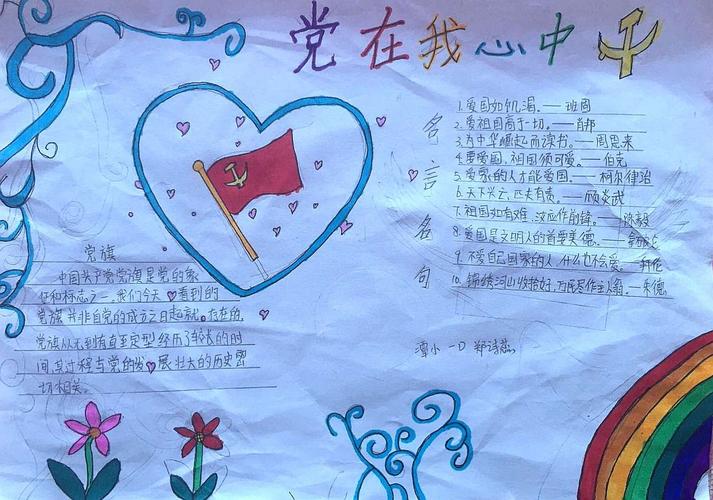 党在我心中
名言名句
1.爱国如饥渴。——班固
2.爱祖国高于一切。——肖邦
3.为中华崛起而读书。——周恩来
4.要爱国,祖国须可爱。——伯克
5.爱家的人才能爱国。——柯尔律治
6.天下兴亡,匹夫有责。——顾炎武
7.祖国如有难,汝应作前锋。——陈毅
8.爱国是文明人的首要美德。——拿破仑
9.不爱自己国家的人,什么也不会爱。——拜伦
10.锦绣河山收拾好,万民尽作主人翁。——朱德
潭小一D 郑诗蕊
党旗
中国共产党党旗是党的象
征和标志之一。我们今天看到的
党旗并非自党的成立之日起就存在的,
党旗从无到有直至定型经历了较长的时
间,其过程与党的发展壮大的历史密
切相关。